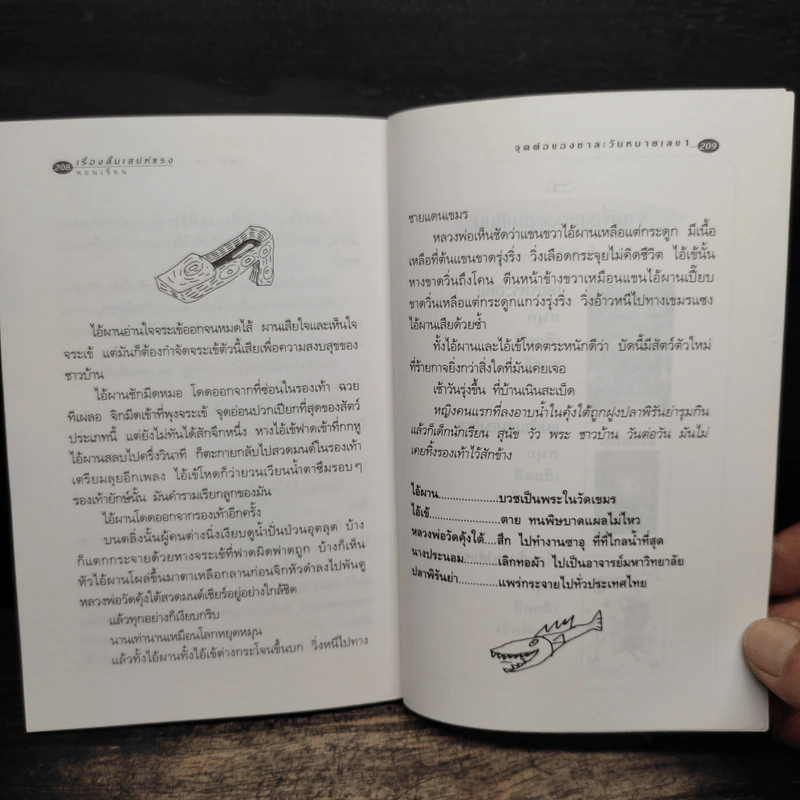 208
เรื่องสั้นเสน่ห์แรง
คอนเรียน
ไอ้ผานอ่านใจจระเข้ออกจนหมดไส้ ผานเสียใจและเห็นใจ
จระเข้ แต่มันก็ต้องกำจัดจระเข้ตัวนี้เสียเพื่อความสงบสุขของ
ชาวบ้าน
ไอ้ผานชักมีดหมอ โดดออกจากที่ซ่อนในรองเท้า ฉวย
ทีเผลอ จิกมีดเข้าที่พุงจระเข้ จุดอ่อนปวกเปียกที่สุดของสัตว์
ประเภทนี้ แต่ยังไม่ทันได้สักจึกหนึ่ง หางไอ้เข้ฟาดเข้าที่กกหู
ไอ้ผานสลบไปครึ่งวินาที ก็ตะกายกลับไปสวดมนต์ในรองเท้า
เตรียมลุยอีกเพลง ไอ้เข้โหดก็ว่ายวนเวียนน้ำตาซึมรอบๆ
รองเท้ายักษ์นั้น มันคำรามเรียกลูกของมัน
ไอ้ผานโดดออกจากรองเท้าอีกครั้ง
บนตลิ่งนั้นผู้คนต่างนิ่งเงียบดูน้ำปั่นป่วนอุตลุด บ้าง
ก็แตกกระจายด้วยหางจระเข้ที่ฟาดผิดฟาดถูก บ้างก็เห็น
หัวไอ้ผานโผล่ขึ้นมาตาเหลือกลานก่อนจิกหัวดำลงไปพันตู
หลวงพ่อวัดคุ้งใต้สวดมนต์เชียร์อยู่อย่างใกล้ชิด
แล้วทุกอย่างก็เงียบกริบ
นานเท่านานเหมือนโลกหยุดหมุน
แล้วทั้งไอ้ผานทั้งไอ้เข้ต่างกระโจนขึ้นบก วิ่งหนีไปทาง
จุดด้อยของชาละวันหมายเลข 1
209
ชายแดนเขมร
หลวงพ่อเห็นชัดว่าแขนขวาไอ้ผานเหลือแต่กระดูก มีเนื้อ
เหลือที่ต้นแขนขาดรุ่งริ่ง วิ่งเลือดกระจุยไม่คิดชีวิต ไอ้เข้นั้น
หางขาดวิ่นถึงโคน ตีนหน้าข้างขวาเหมือนแขนไอ้ผานเปี๊ยบ
ขาดวิ่นเหลือแต่กระดูกแกว่งรุ่งริ่ง วิ่งอ้าวหนีไปทางเขมรแซง
ไอ้ผานเสียด้วยซ้ำ
ทั้งไอ้ผานและไอ้เข้โหดตระหนักดีว่า บัดนี้มีสัตว์ตัวใหม่
ที่ร้ายกาจยิ่งกว่าสิ่งใดที่มันเคยเจอ
เช้าวันรุ่งขึ้น ที่บ้านเนินสะเบ็ด
หญิงคนแรกที่ลงอาบน้ำในคุ้งใต้ถูกฝูงปลาพิรันย่ารุมกิน
แล้วก็เด็กนักเรียน สุนัข วัว พระ ชาวบ้าน วันต่อวัน มันไม่
เคยทิ้งรองเท้าไว้สักข้าง
ไอ้ผาน................บวชเป็นพระในวัดเขมร
ไอ้เข้....................ตาย ทนพิษบาดแผลไม่ไหว
หลวงพ่อวัดคุ้งใต้....สึก ไปทำงานซาอุ ที่ที่ไกลน้ำที่สุด
นางประนอม...........เลิกทอผ้า ไปเป็นอาจารย์มหาวิทยาลัย
ปลาพิรันย่า...........แพร่กระจายไปทั่วประเทศไทย